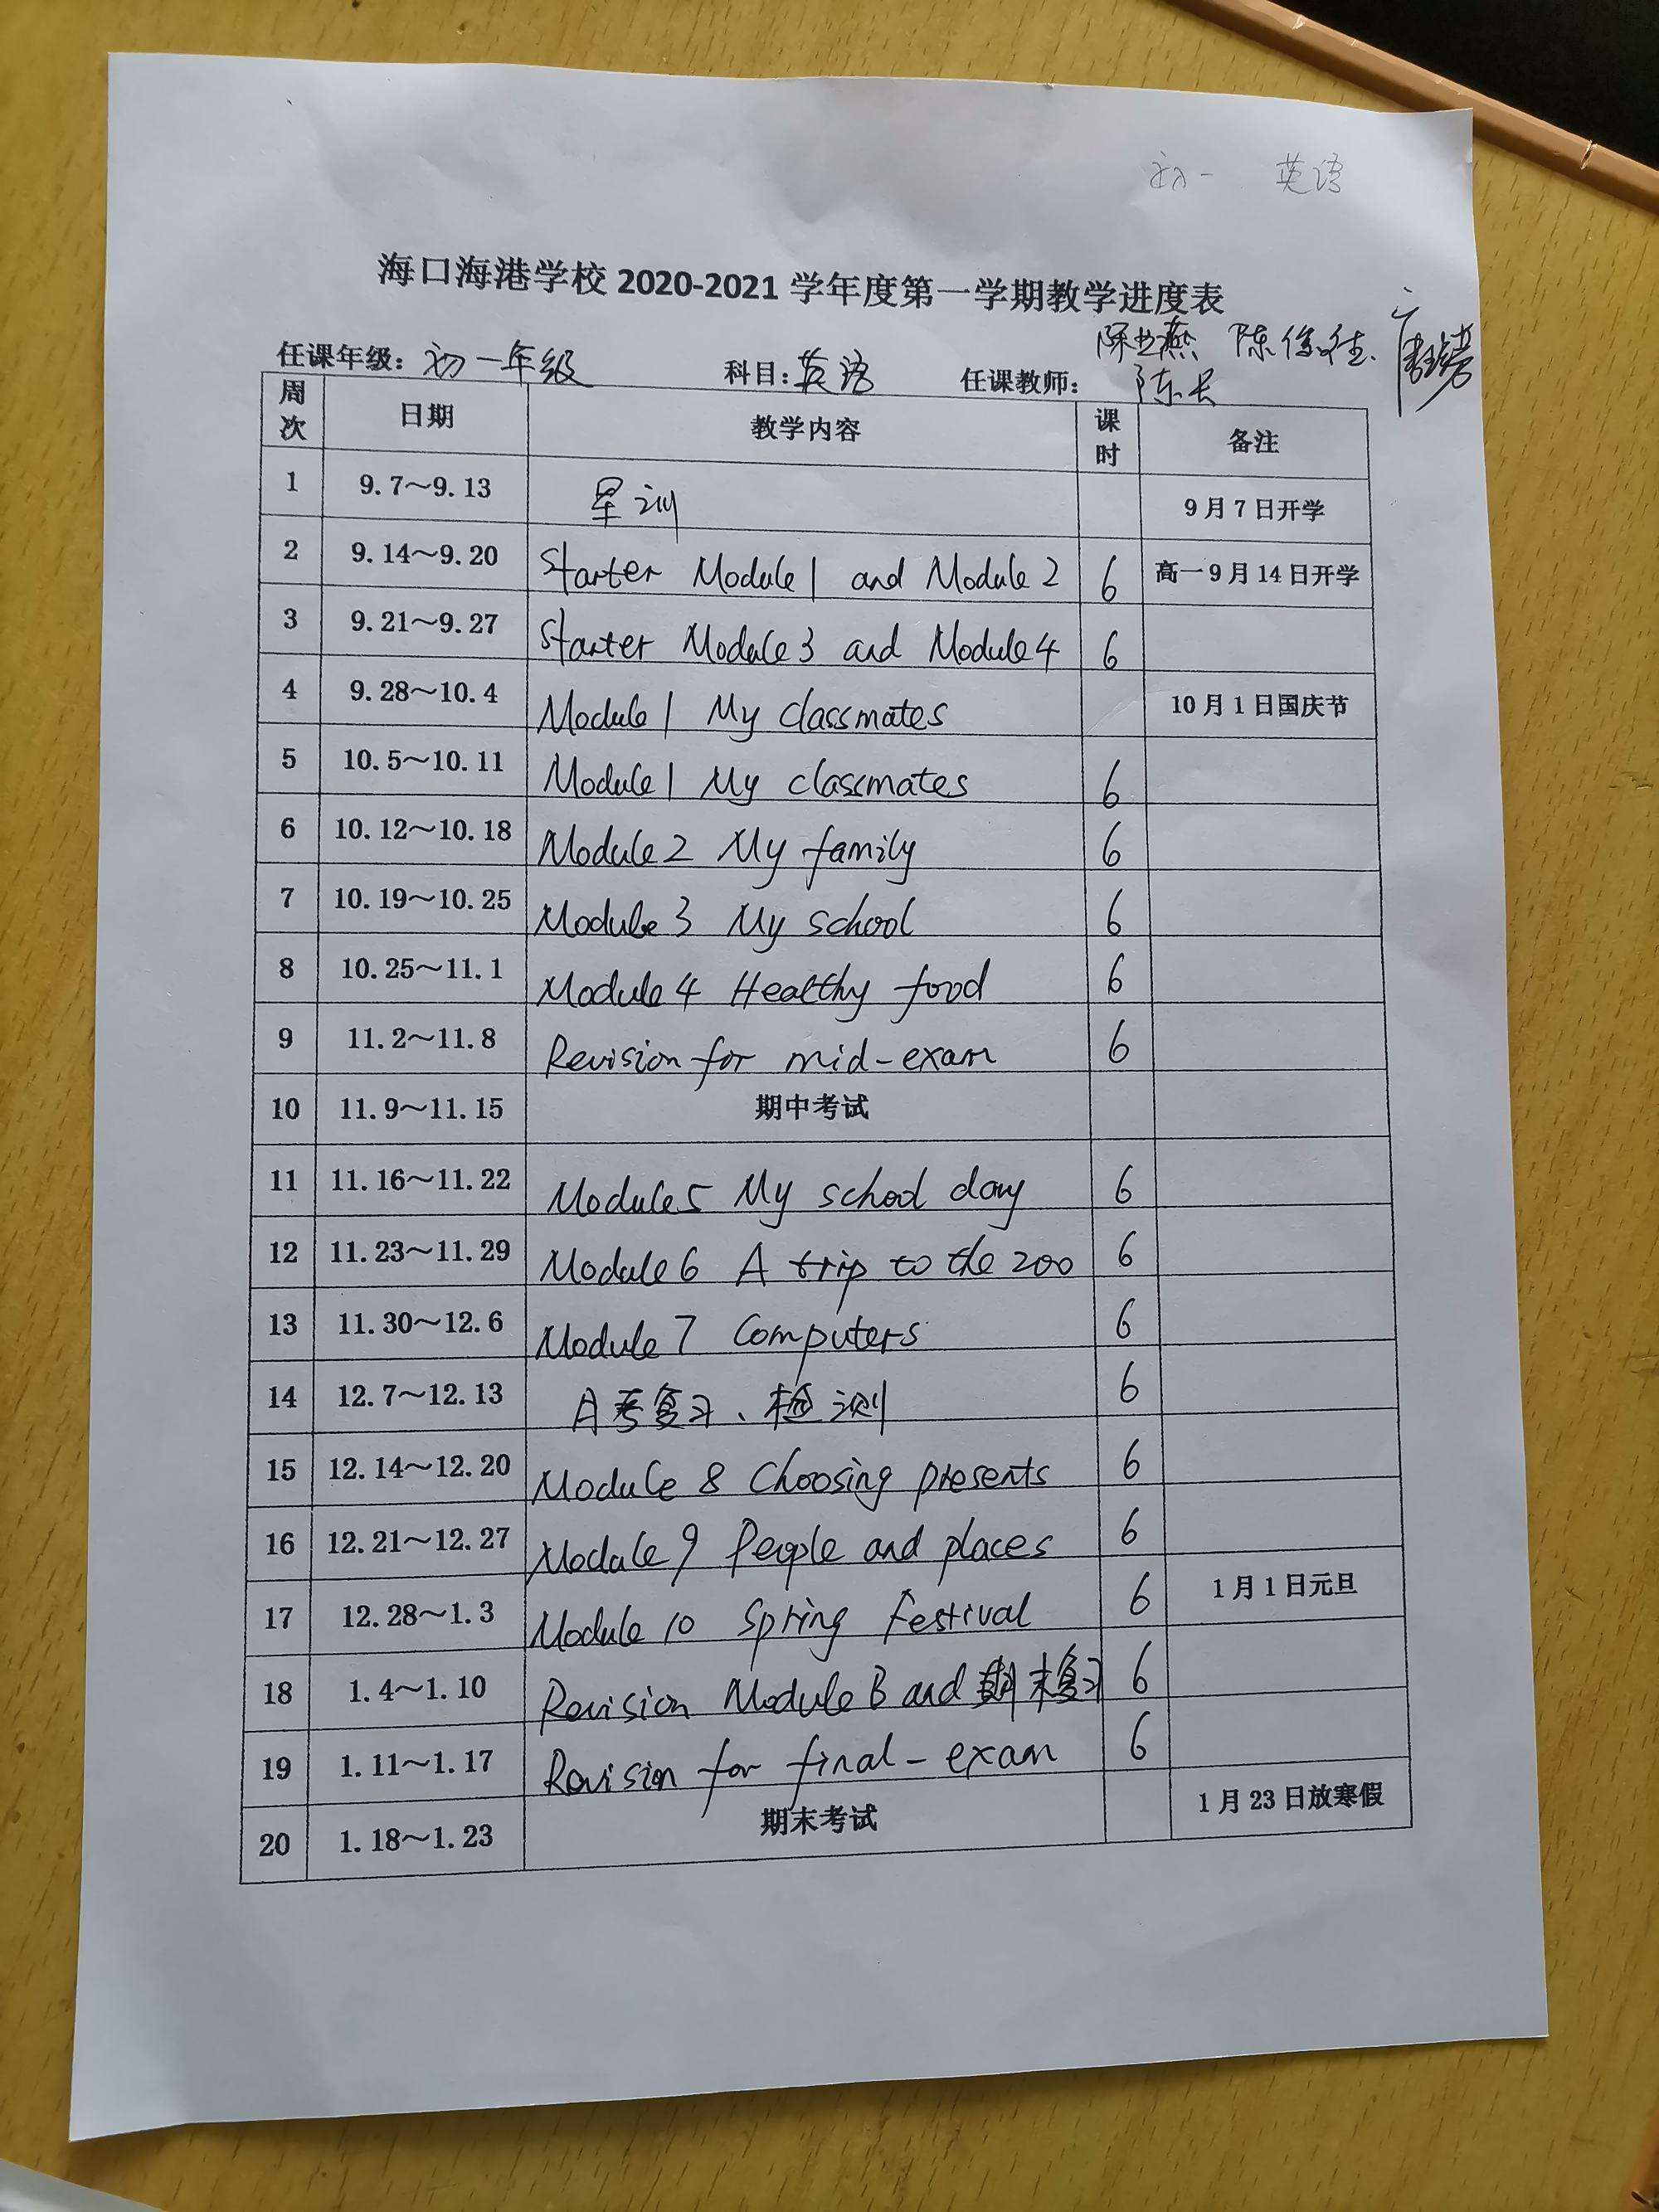 初一 英语
海口海港学校 2020-2021 学年度第一学期教学进度表
任课年级: 初一年级 科目: 英语 任课教师: 陈 燕 陈俊
陈
周次 日期 教学内容 课时 备注
1 9.7~9.13 军训 9月7日开学
2 9.14~9.20 Starter Module 1 and Module 2 6 高一9月14日开学
3 9.21~9.27 Starter Module 3 and Module 4 6
4 9.28~10.4 Module 1 My classmates 10月1日国庆节
5 10.5~10.11 Module 1 My classmates 6
6 10.12~10.18 Module 2 My family 6
7 10.19~10.25 Module 3 My school 6
8 10.25~11.1 Module 4 Healthy food 6
9 11.2~11.8 Revision for mid-exam 6
10 11.9~11.15 期中考试
11 11.16~11.22 Module 5 My school day 6
12 11.23~11.29 Module 6 A trip to the zoo 6
13 11.30~12.6 Module 7 Computers 6
14 12.7~12.13 月考复习、检测 6
15 12.14~12.20 Module 8 Choosing presents 6
16 12.21~12.27 Module 9 People and places 6
17 12.28~1.3 Module 10 Spring Festival 6 1月1日元旦
18 1.4~1.10 Revision Module B and 期末复习 6
19 1.11~1.17 Revision for final-exam 6
20 1.18~1.23 期末考试 1月23日放寒假